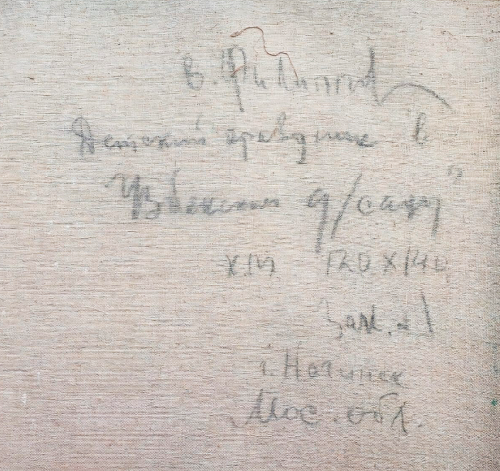 В. Филиппов
Детский праздник "в
Узбекском д/саду"
х.м 120 х 140
г. Ногинск
Мос. обл.